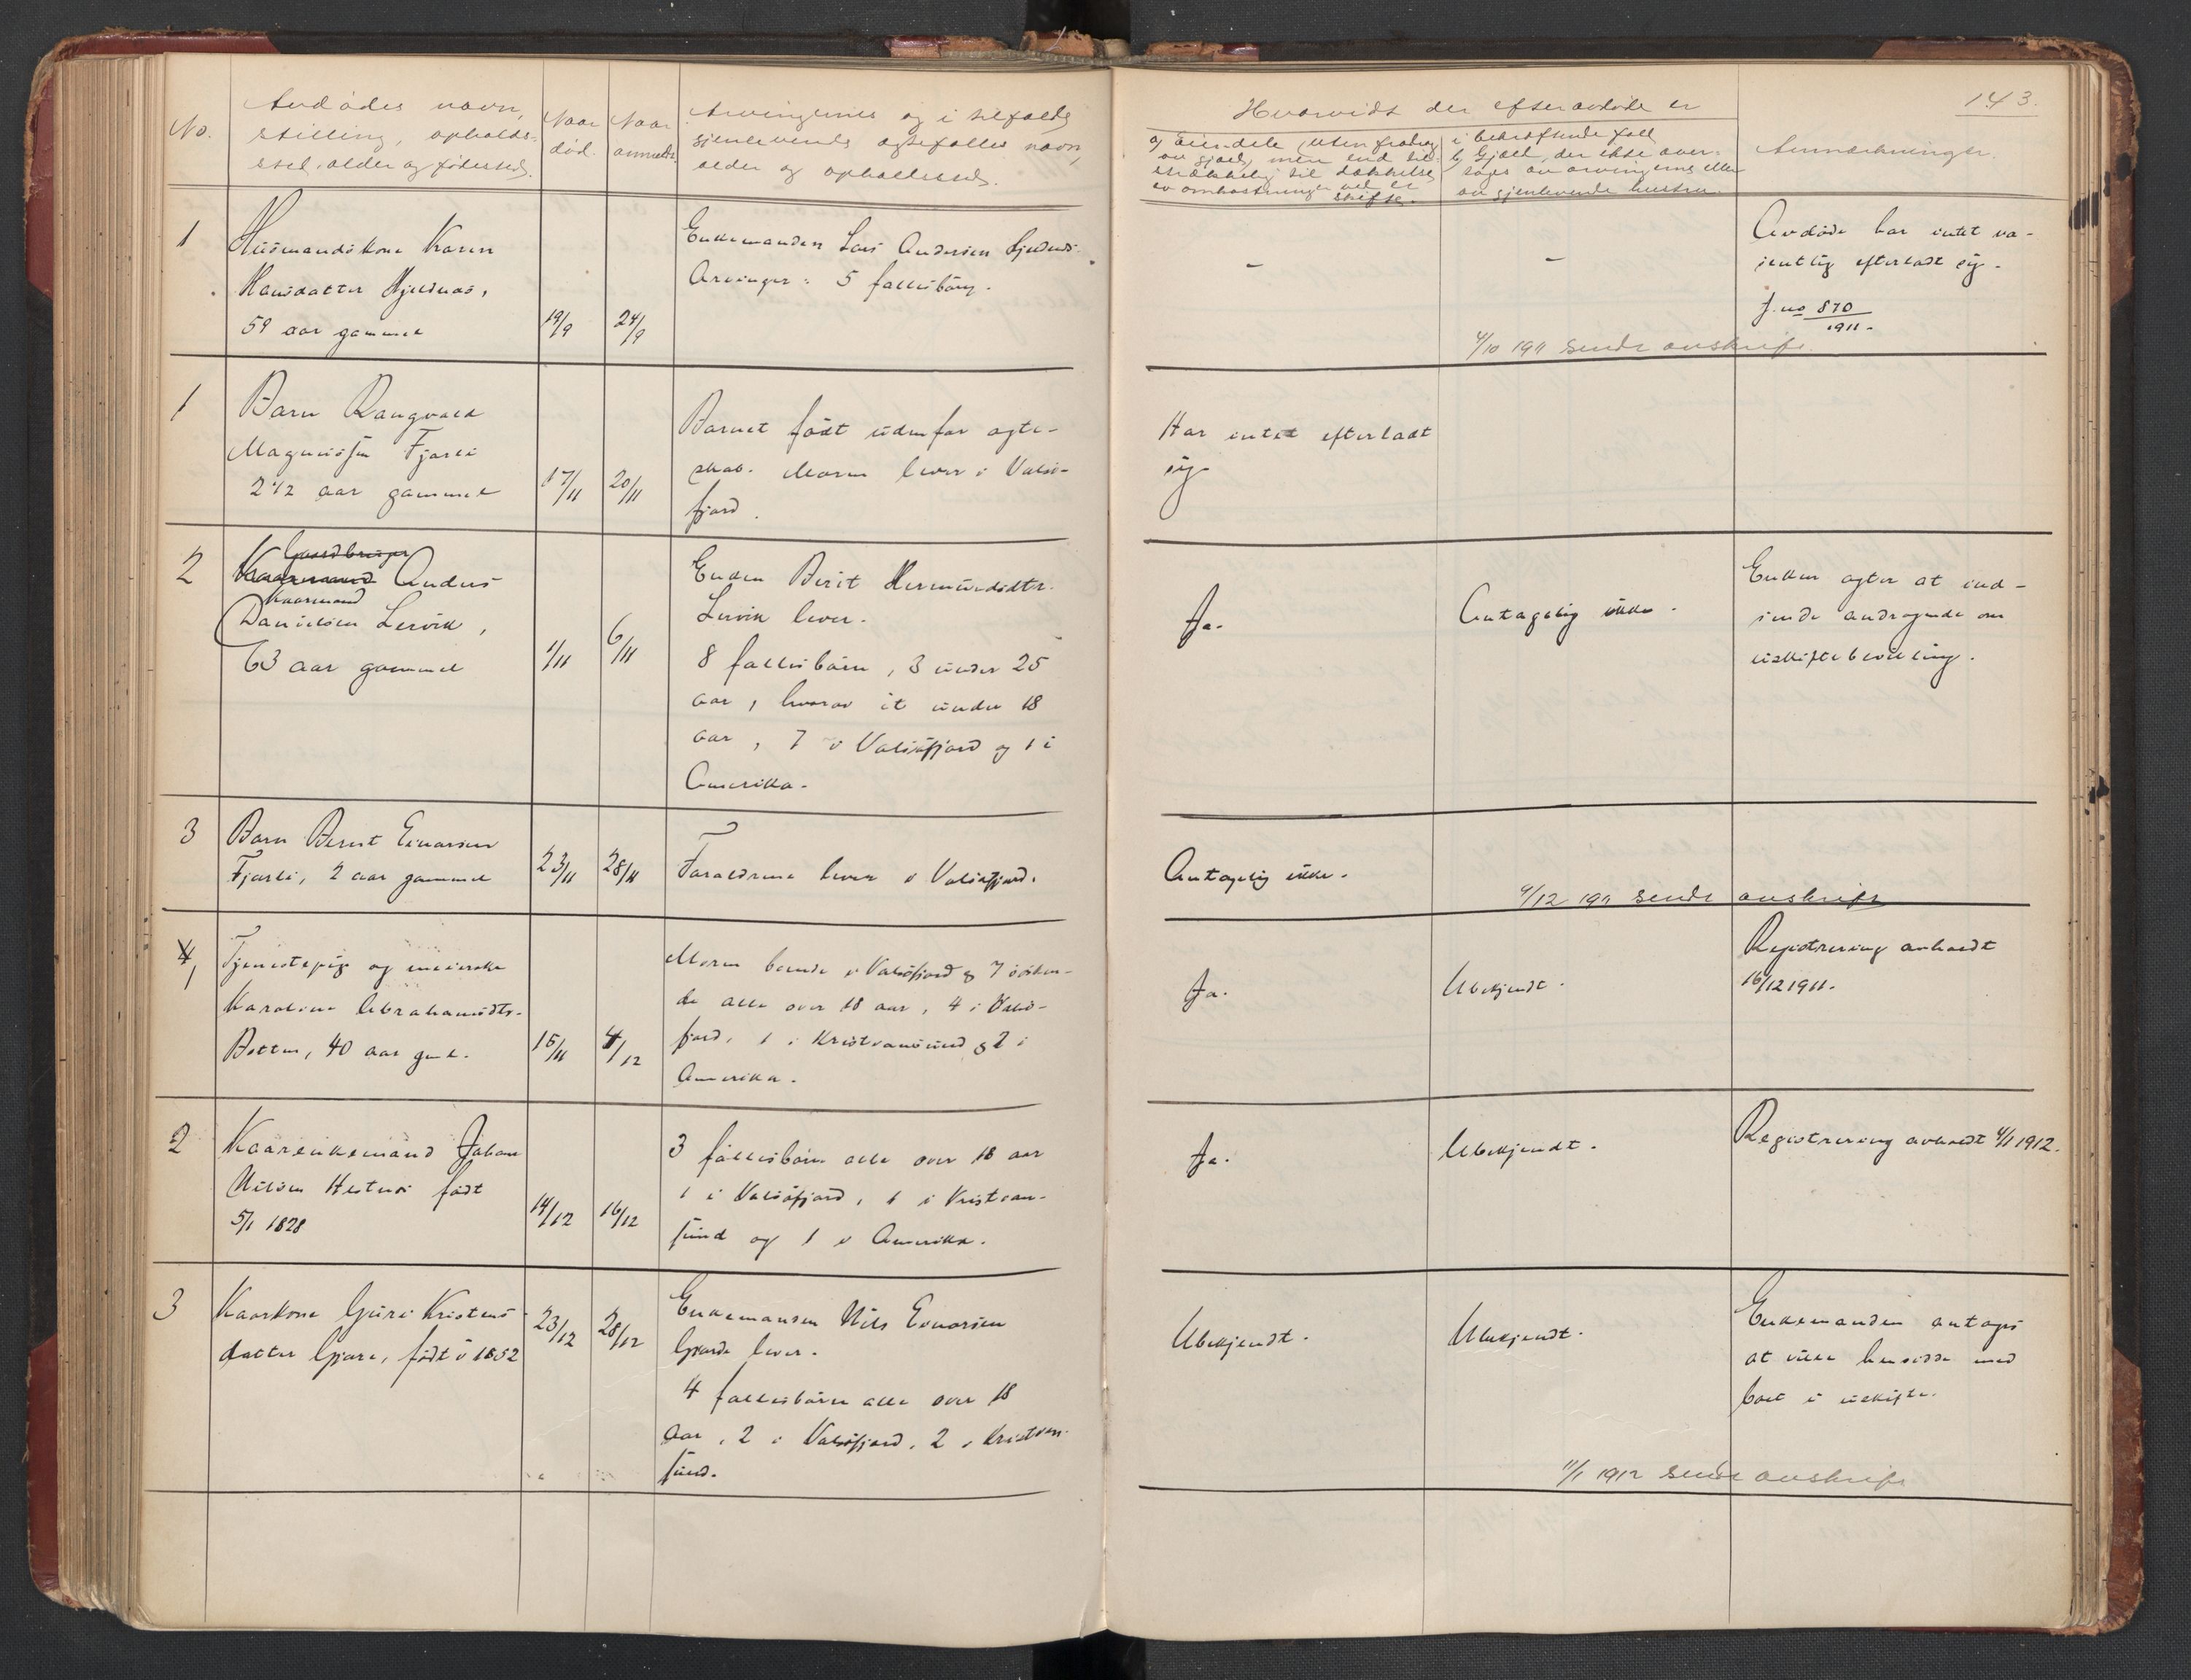 143.
No.
Avdødes navn,
stilling, opholds-
sted, alder og fødested.
Naar
død.
Naar
anmeldt
Arvingernes og i tilfælde
gjenlevende ægtefælles navn,
alder og opholdssted.
Hvorvidt der efter avdøde er
a) eiendele (uten fradrag
av gjæld) mer end til-
strækkelig til dækkelse
av omkostninger ved et
skifte.
i bekræftende fall
b) Gjæld, der ikke over-
tages av arvingerne eller
av gjenlevende hustru.
Anmærkninger.
1
Husmandskone Karen
Hansdatter Hjeldnæs,
59 aar gammel
19/9
24/9
Enkemanden Lars Andersen Hjeldnæs.
Arvinger: 5 fællesbarn.
-
-
Avdøde har intet væ-
sentlig efterladt sig.
J. no 870
1911.
4/10 1911 sendt avskrift.
1
Barn Rangvald
Magnussen Fjærli
2 1/2 aar gammel
17/11
20/11
Barnet født udenfor ægte-
skab. Moren lever i Valsø-
fjord.
Har intet efterladt
sig.
2
Gaardbruger
Kaarmand Anders
Kaarmand
Danielsen Lervik,
63 aar gammel
1/11
6/11
Enken Berit Hermundsdtr.
Lervik lever.
8 fællesbarn, 3 under 25
aar, hvorav et under 18
aar, 7 i Valsøfjord og 1 i
Amerika.
Ja.
Antagelig ikke.
Enken agter at ind-
sende andragende om
uskiftebevilling.
3
Barn Bernt Einarsen
Fjærli, 2 aar gammel
23/11
28/11
Foreldrene lever i Valsøfjord.
Antagelig ikke.
9/12 1911 sendt avskrift
4 1
Tjenestepige og meierske
Karoline Abrahamsdtr.
Botten, 40 aar gml.
15/11
4/12
Moren boende i Valsøfjord og 7 søsken-
de alle over 18 aar, 4 i Valsø-
fjord, 1 i Kristiansund og 2 i
Amerika.
Ja.
Ubekjendt.
Registrering avholdt
16/12 1911.
2
Kaarenkemand Johan
Nilsen Hestnes født
5/1 1828
14/12
16/12
3 fællesbørn alle over 18 aar
1 i Valsøfjord, 1 i Kristian-
sund og 1 i Amerika.
Ja.
Ubekjendt.
Registrering avholdt 4/1 1912.
3
Kaarkone Guri Kristens-
datter Gjøra, født i 1852
23/12
28/12
Enkemanden Nils Einarsen
Gjøra lever.
4 fællesbørn alle over 18
aar, 2 i Valsøfjord, 2 i Kristian-
sund.
Ubekjendt.
Ubekjendt.
Enkemanden antages
at ville hensidde med
boet i uskifte.
11/1 1912 sendt avskrift